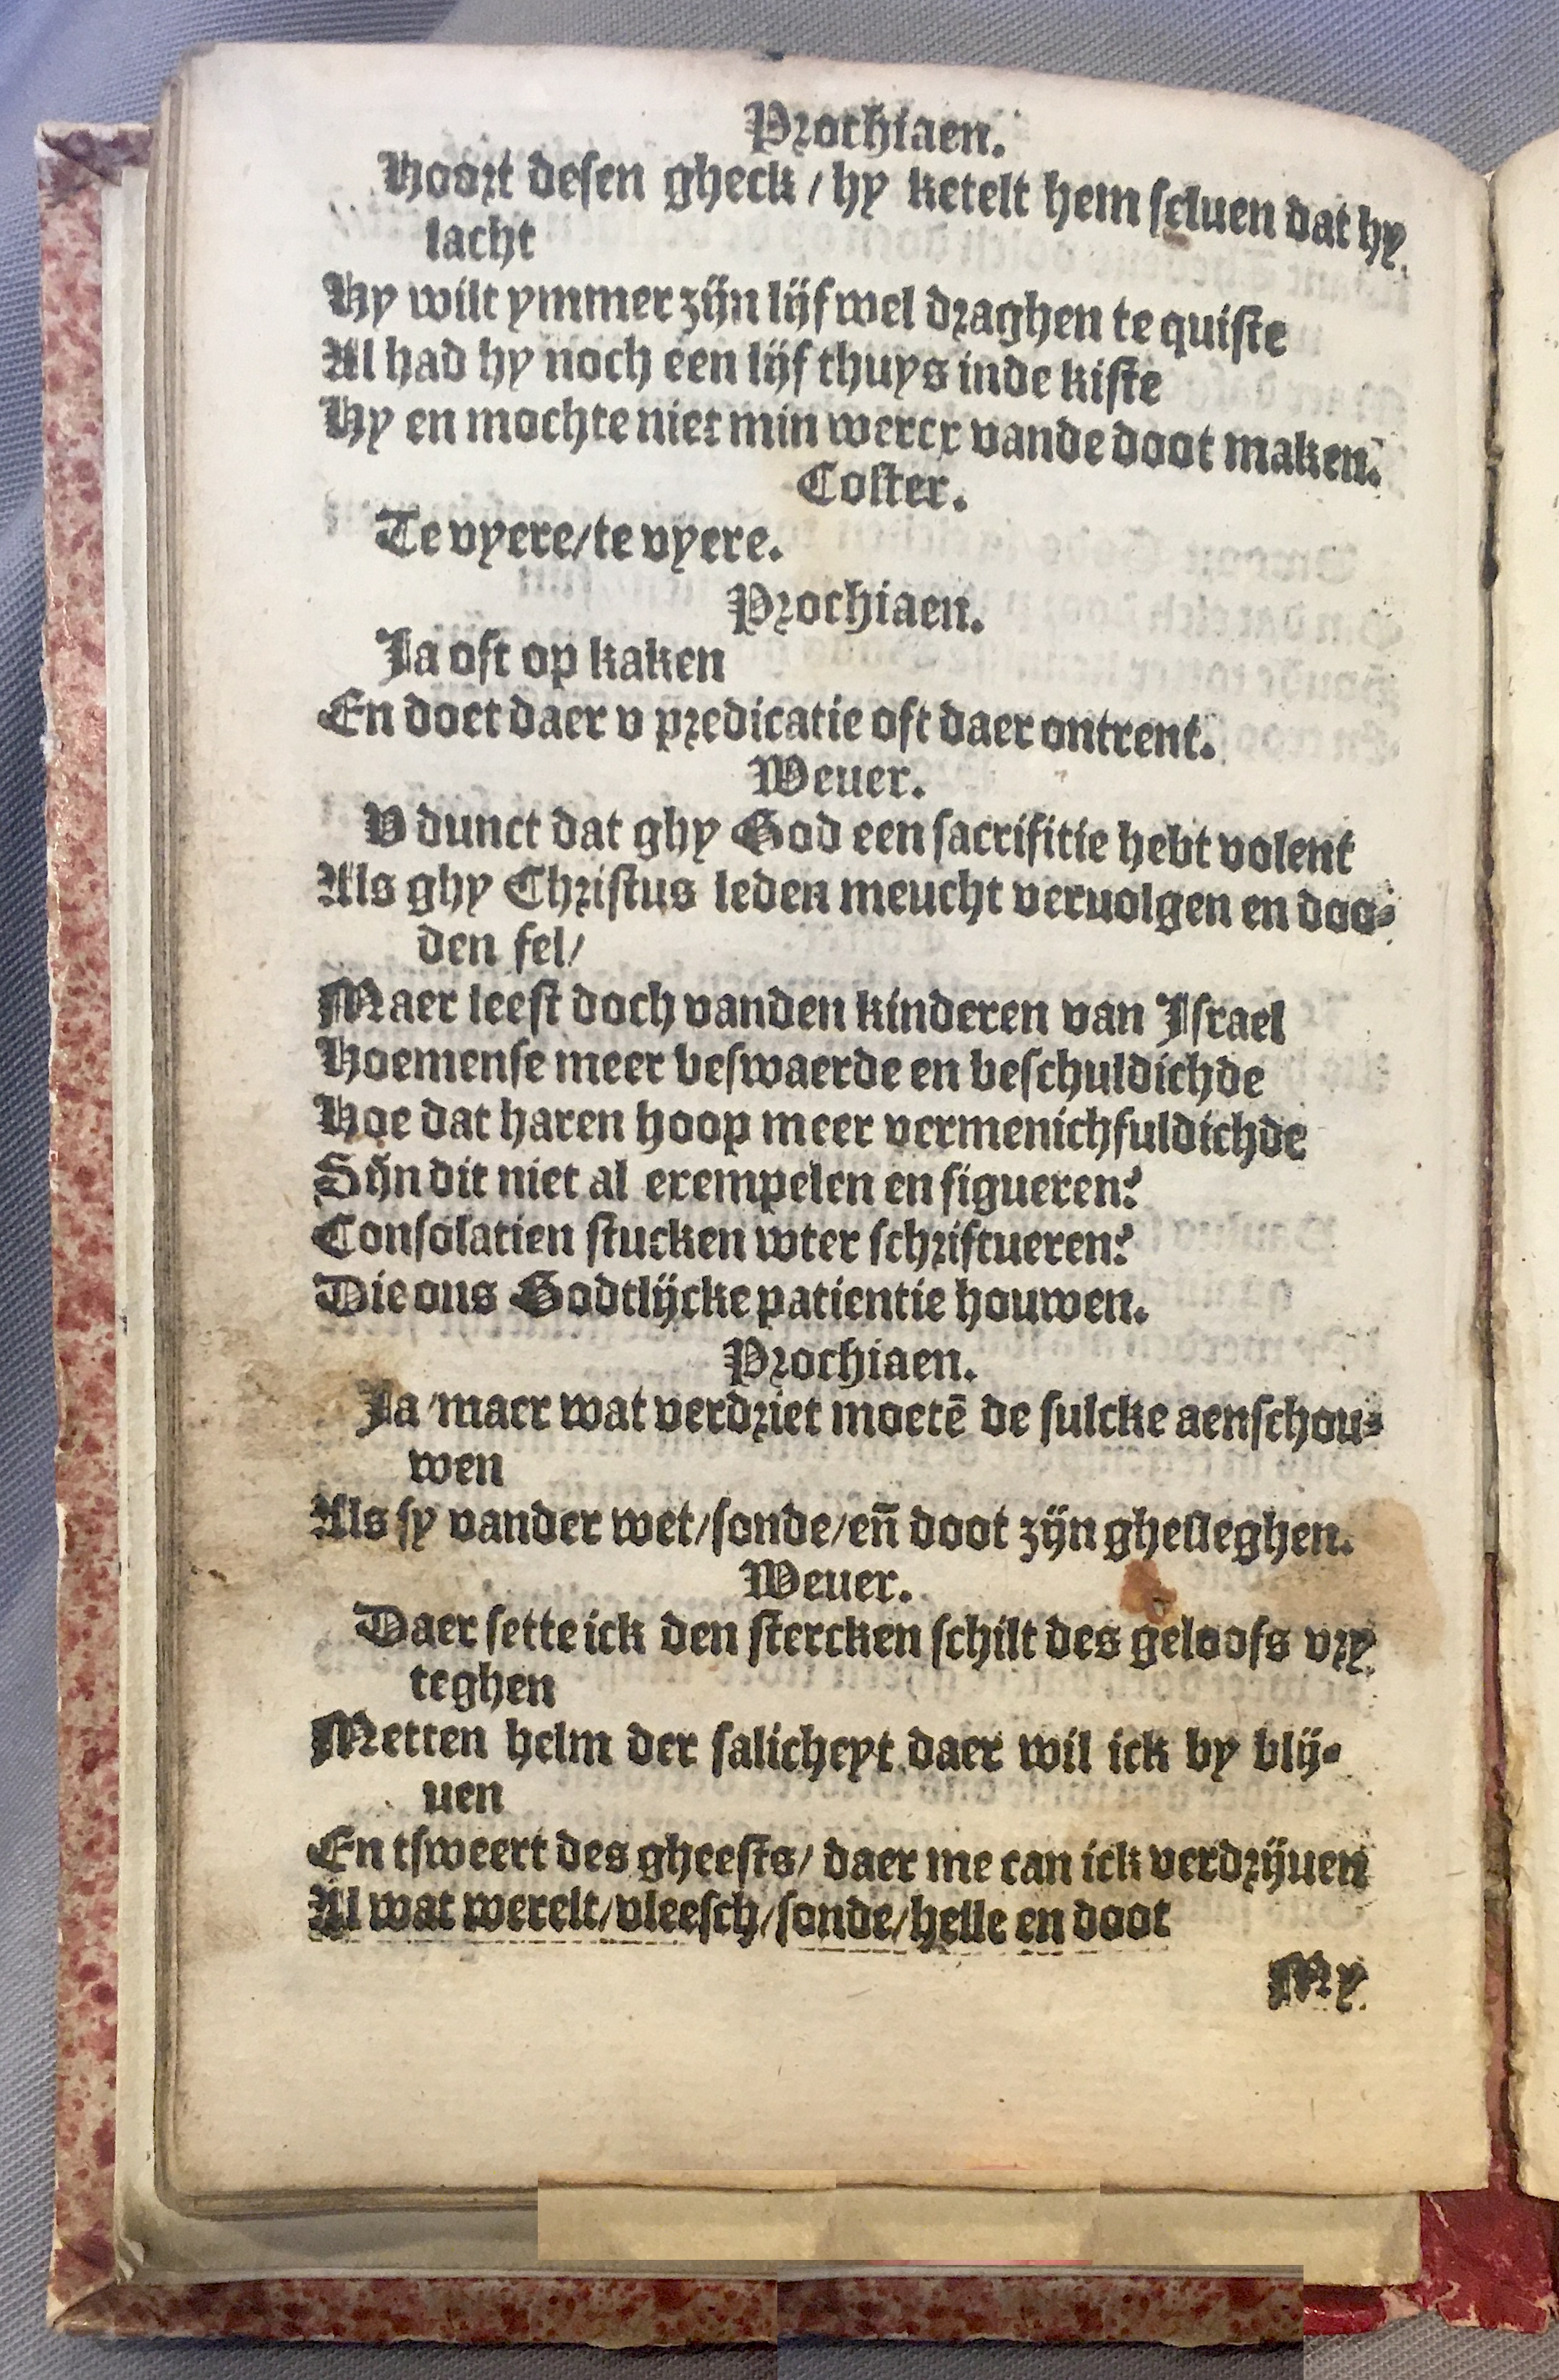 Prochiaen.
Hoort desen gheck / hy ketelt hem seluen dat hy
lacht
Hy wilt ymmer zijn lijf wel draghen te quiste
Al had hy noch een lijf thuys inde kiste
Hy en mochte niet min wercx vande doot maken.
Coster.
Te vyere/te vyere.
Prochiaen.
Ja oft op kaken
En doet daer v predicatie oft daer ontrent.
Weuer.
V dunct dat ghy God een sacrifitie hebt volent
Als ghy Christus leden meucht veruolgen en doo-
den fel/
Maer leest doch vanden kinderen van Israel
Hoemense meer beswaerde en beschuldichde
Hoe dat haren hoop meer vermenichfuldichde
Sijn dit niet al exempelen en figueren?
Consolatien stucken wter schriftueren?
Die ons Godtlijcke patientie houwen.
Prochiaen.
Ja/maer wat verdriet moetē de sulcke aenschou-
wen
Als sy vander wet/sonde/en̄ doot zijn ghesleghen.
Weuer.
Daer sette ick den stercken schilt des geloofs vry
teghen
Metten helm der salicheyt daer wil ick by blij-
uen
En tsweert des gheests/ daer me can ick verdrijuen
Al wat werelt/vleesch/sonde/helle en doot
My